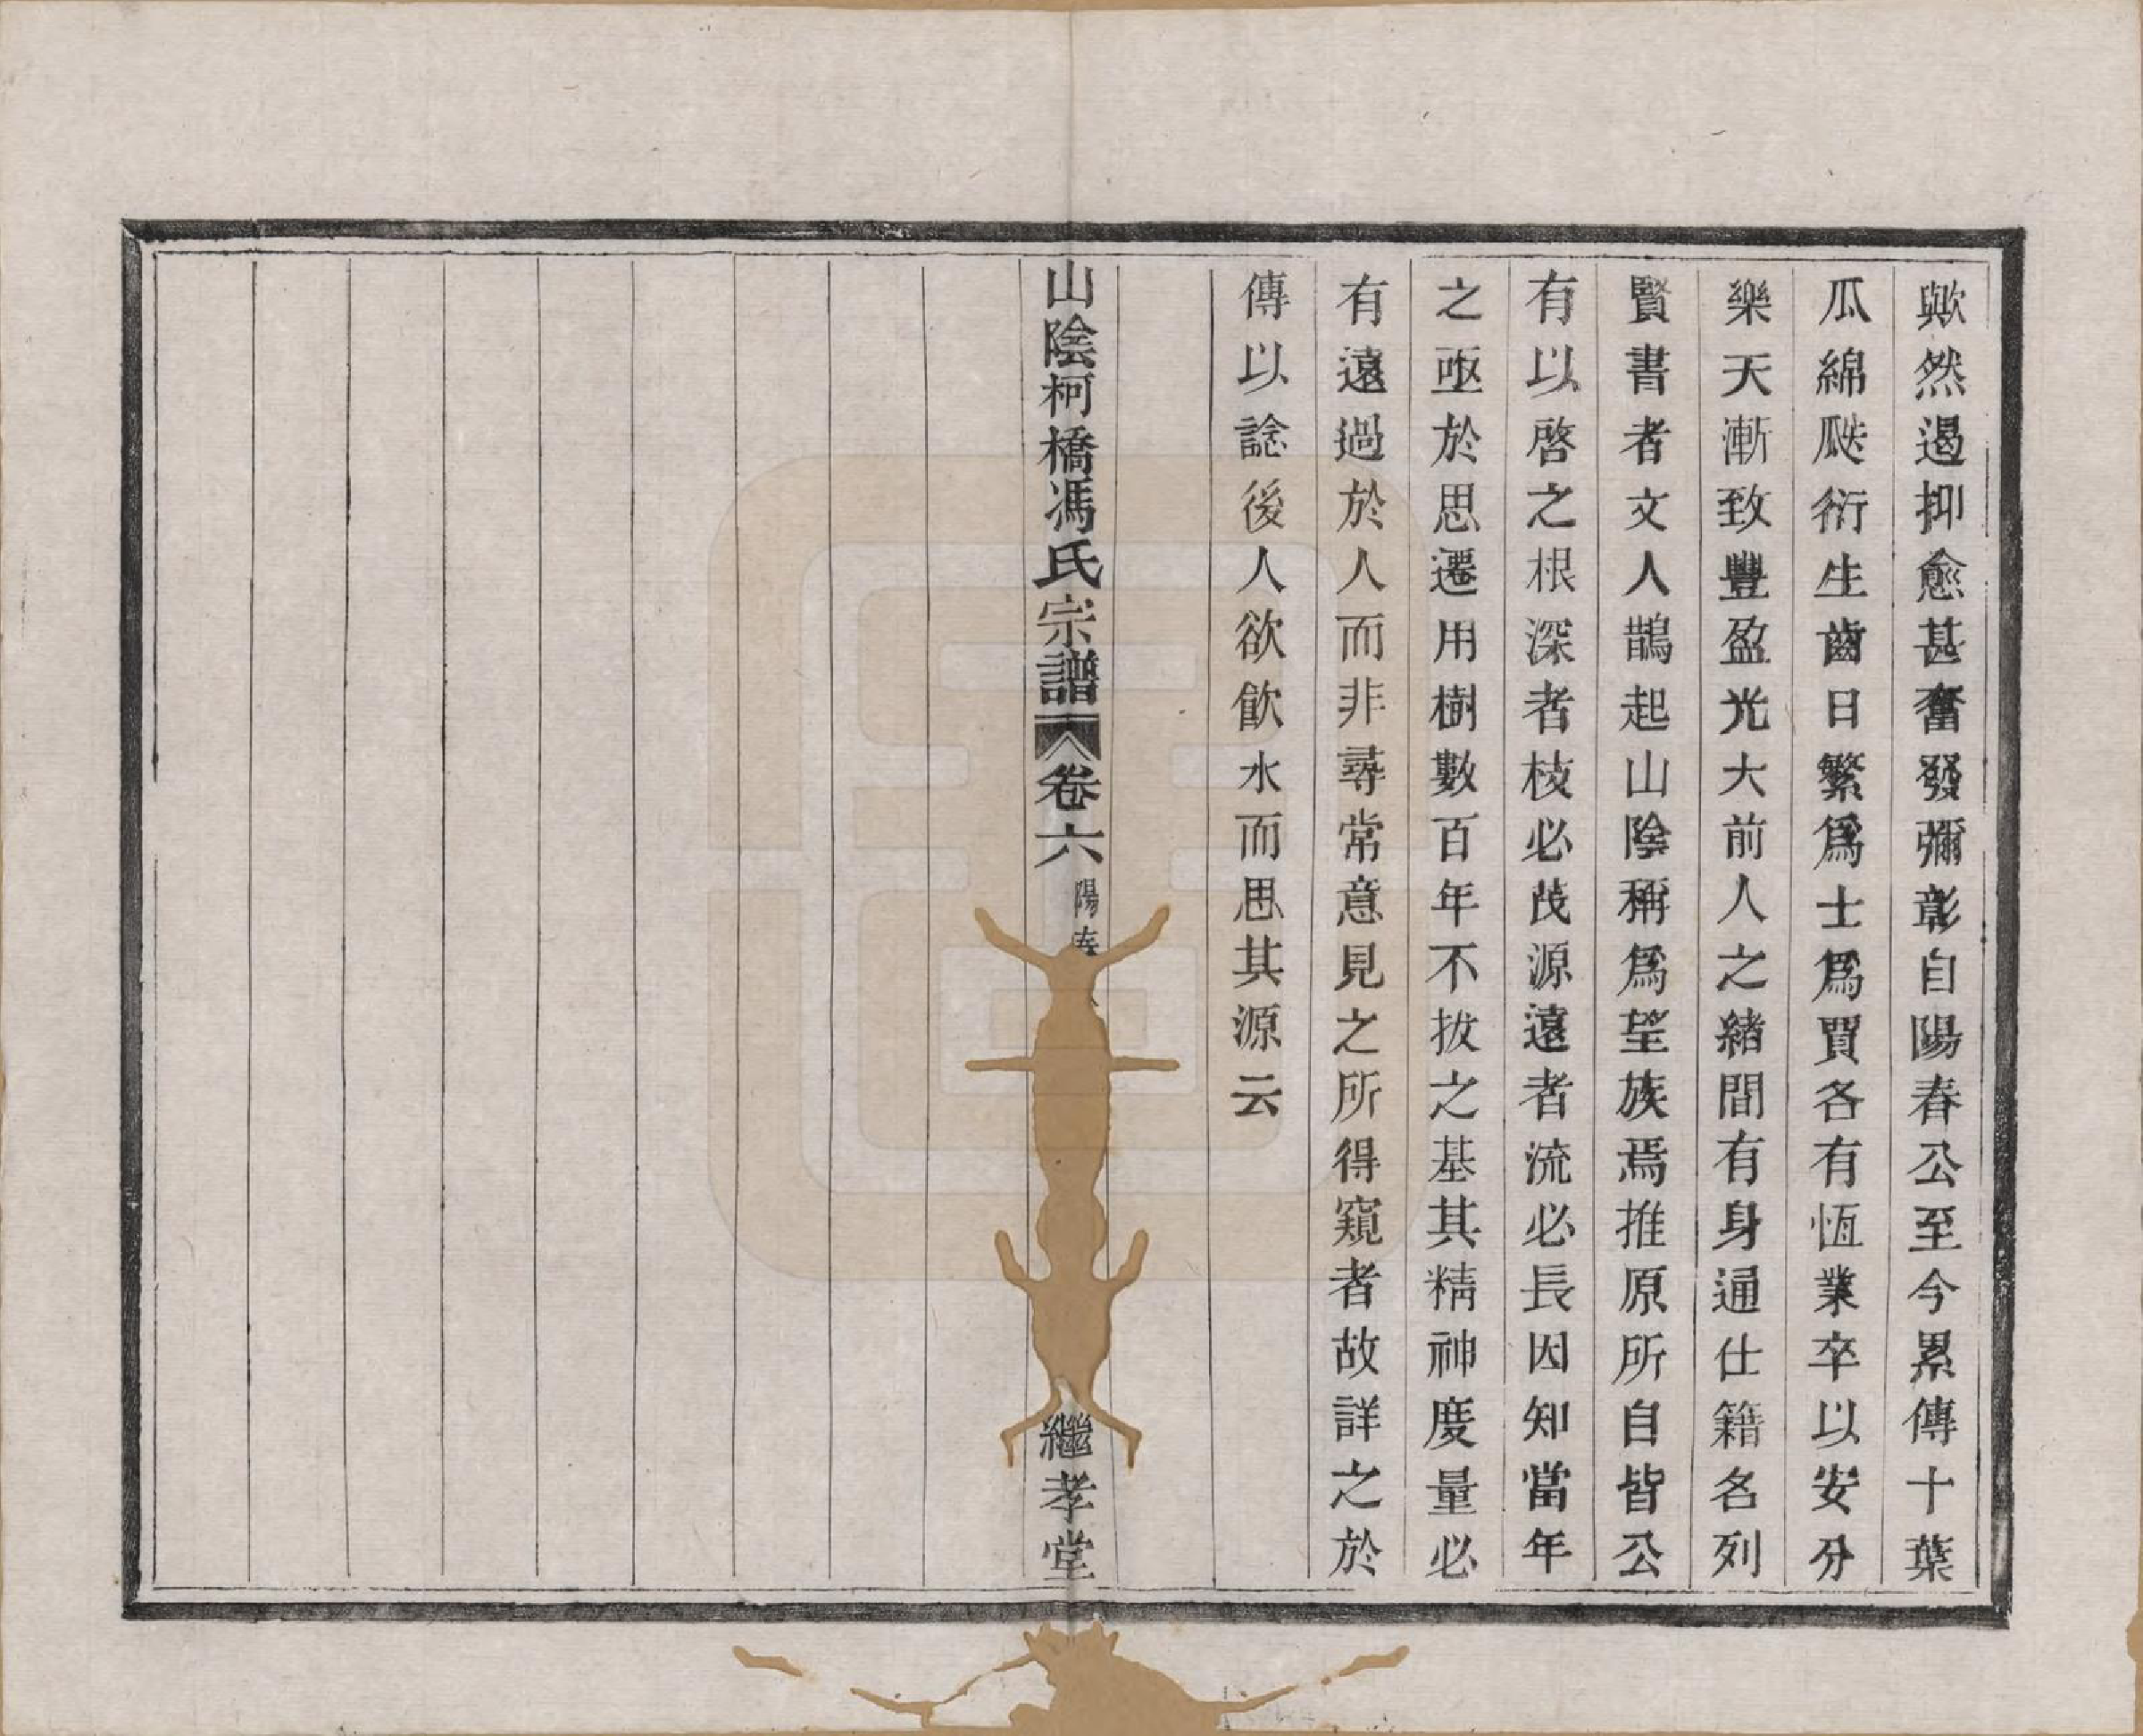 歟然遏抑愈甚奮發彌彰自陽春公至今累傳十葉
瓜綿瓞衍生齒日繁爲士爲賈各有恆業卒以安分
樂天漸致豐盈光大前人之緒間有身通仕籍名列
賢書者文人鵲起山陰稱爲望族焉推原所自皆公
有以啓之根深者枝必茂源遠者流必長因知當年
之亟於思遷用樹數百年不拔之基其精神度量必
有遠過於人而非尋常意見之所得窺者故詳之於
傳以諗後人欲飲水而思其源云
山陰柯橋馮氏宗譜 卷六 陽春 繼孝堂